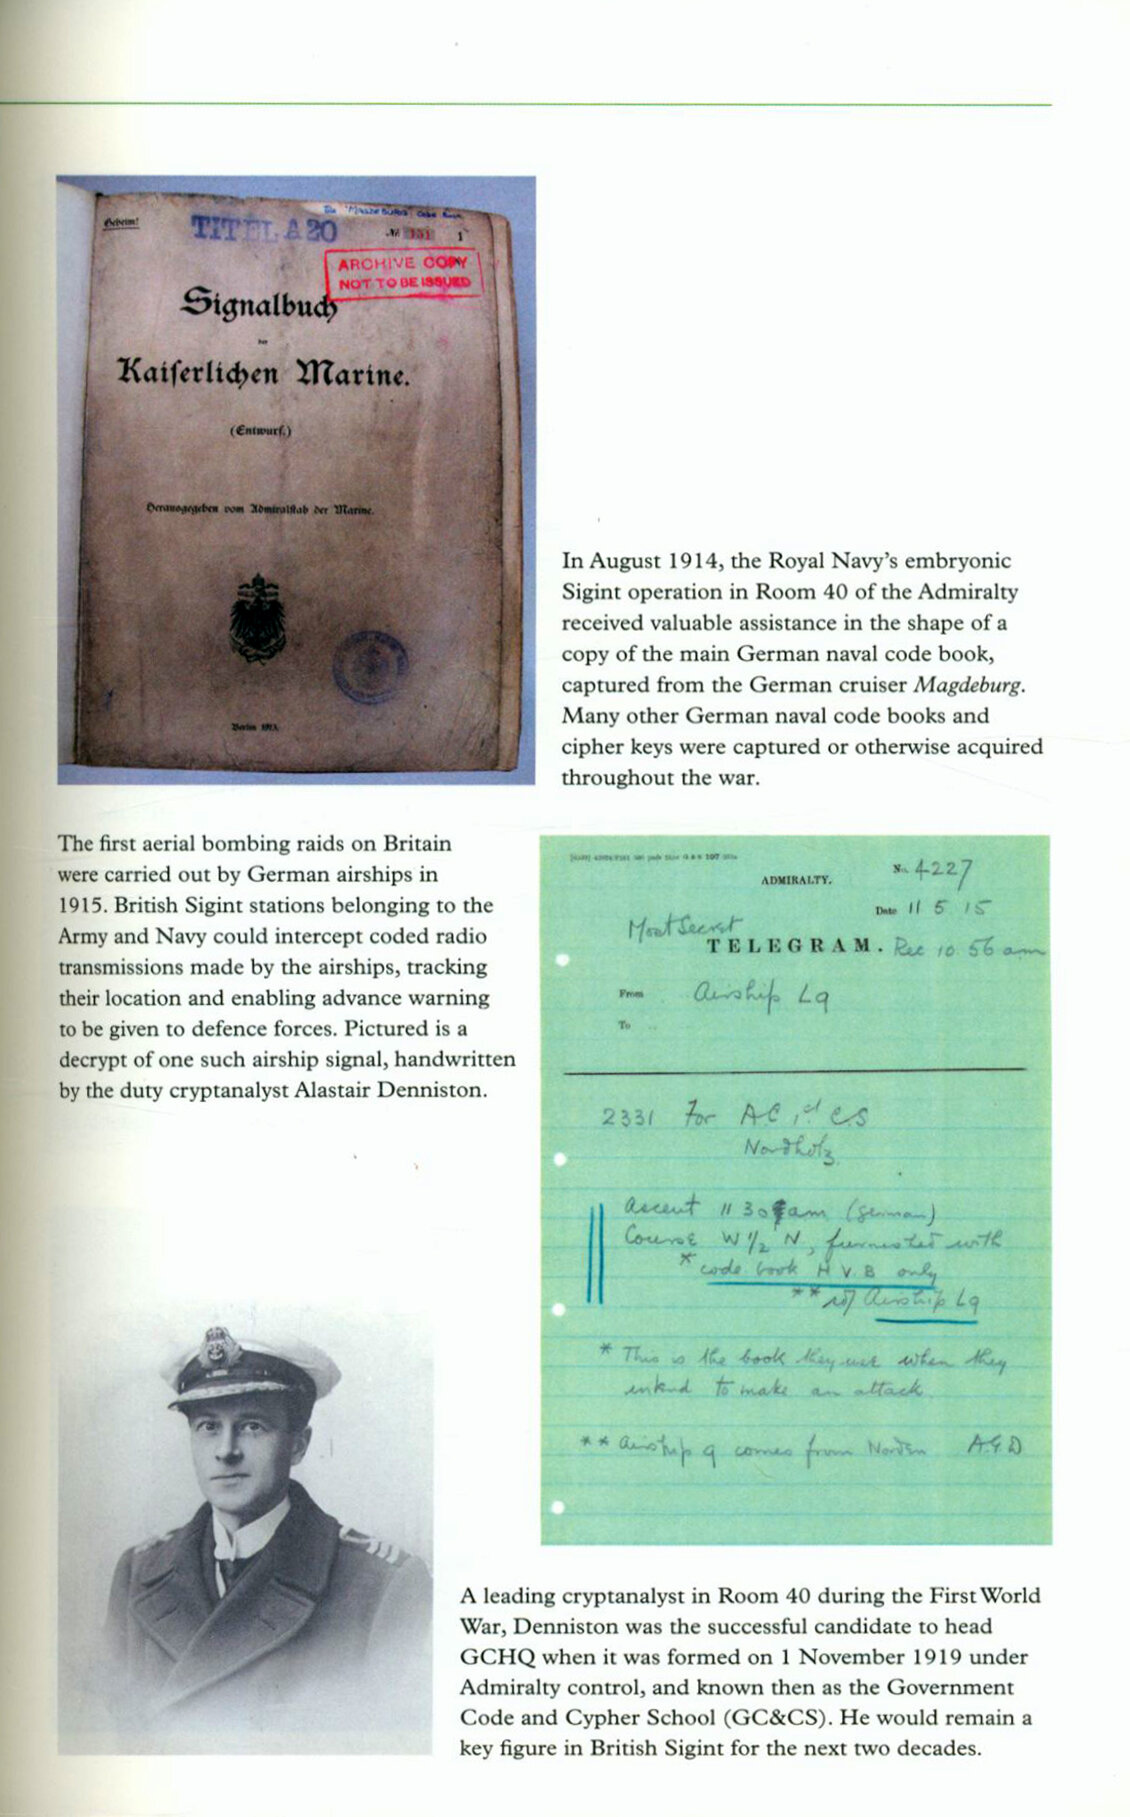 Geheim!
TITEL A 20
The "MAGDEBURG" code book
№ 151 1
ARCHIVE COPY
NOT TO BE ISSUED
Signalbuch
der
Kaiſerlichen Marine.
(Entwurf.)
Herausgegeben vom Admiralſtab der Marine.
Berlin 1913.
In August 1914, the Royal Navy's embryonic
Sigint operation in Room 40 of the Admiralty
received valuable assistance in the shape of a
copy of the main German naval code book,
captured from the German cruiser Magdeburg.
Many other German naval code books and
cipher keys were captured or otherwise acquired
throughout the war.
The first aerial bombing raids on Britain
were carried out by German airships in
1915. British Sigint stations belonging to the
Army and Navy could intercept coded radio
transmissions made by the airships, tracking
their location and enabling advance warning
to be given to defence forces. Pictured is a
decrypt of one such airship signal, handwritten
by the duty cryptanalyst Alastair Denniston.
ADMIRALTY.
No. 4227
Date 11 5 15
Most Secret
TELEGRAM. Rec 10 56 am
From Airship L9
To
2331 For AC 1st CS
Nordholz
Ascent 11 30 am (German)
Course W 1/2 N, furnished with
* code book H V B only
** Airship L9
* This is the book they use when they
intend to make an attack
** Airship 9 comes from Norden A.G.D
A leading cryptanalyst in Room 40 during the First World
War, Denniston was the successful candidate to head
GCHQ when it was formed on 1 November 1919 under
Admiralty control, and known then as the Government
Code and Cypher School (GC&CS). He would remain a
key figure in British Sigint for the next two decades.